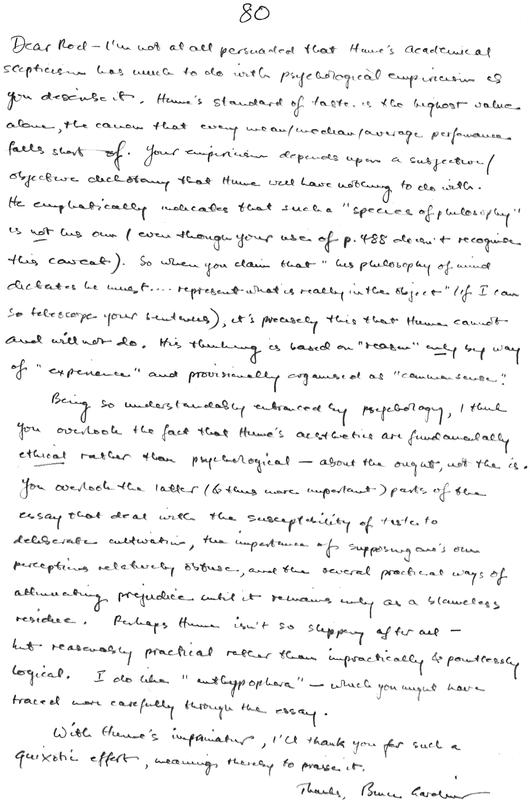 80
Dear Rod – I'm not at all persuaded that Hume's academical
scepticism has much to do with psychological empiricism as
you describe it. Hume's standard of taste is the highest value
alone, the canon that every mean/median/average performance
falls short of. Your empiricism depends upon a subjective/
objective dichotomy that Hume will have nothing to do with.
He emphatically indicates that such a "species of philosophy"
is not his own (even though your use of p. 488 doesn't recognise
this caveat). So when you claim that "his philosophy of mind
dictates he must.... represent what is really in the object" (if I can
so telescope your sentences), it's precisely this that Hume cannot
and will not do. His thinking is based on "reason" only by way
of "experience" and provisionally organised as "common sense".
Being so understandably entranced by psychology, I think
you overlook the fact that Hume's aesthetics are fundamentally
ethical rather than psychological – about the ought, not the is.
You overlook the latter (& thus more important) parts of the
essay that deal with the susceptibility of taste to
deliberate cultivation, the importance of supposing one's own
perceptions relatively obtuse, and the several practical ways of
attenuating prejudice until it remains only as a blameless
residue. Perhaps Hume isn't so slippery after all –
but reasonably practical rather than impractically & pointlessly
logical. I do like "anthypophora" – which you might have
traced more carefully through the essay.
With Hume's imprimatur, I'll thank you for such a
quixotic effort, meaning thereby to praise it.
Thanks, Bruce Gardiner